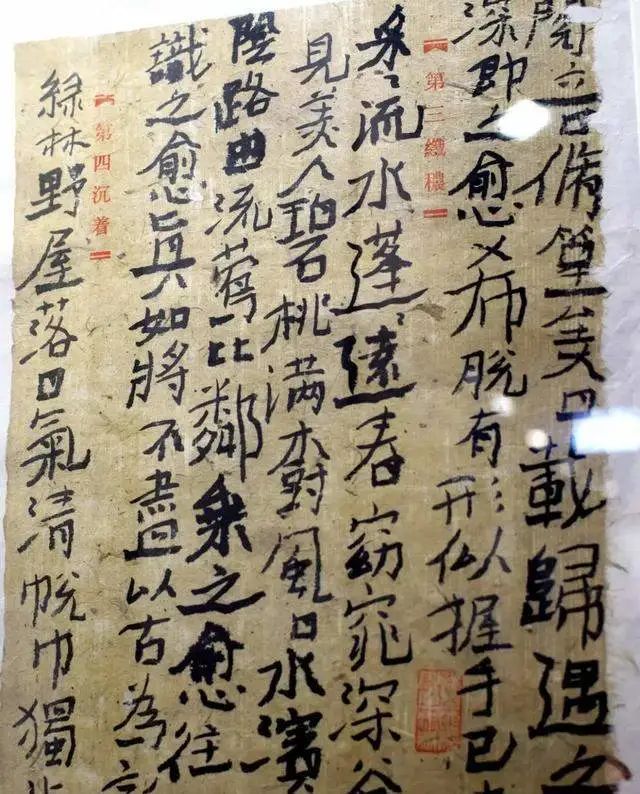 閱音修篁美曰載歸遇之
深即之愈希脫有形似握手已
第三纖穠
采〻流水蓬〻遠春窈窕深谷
見美人碧桃滿樹風日水濱
陰路曲流鶯比鄰乘之愈往
識之愈真如將不盡以古為
第四沉着
綠林野屋落日氣清帨巾獨